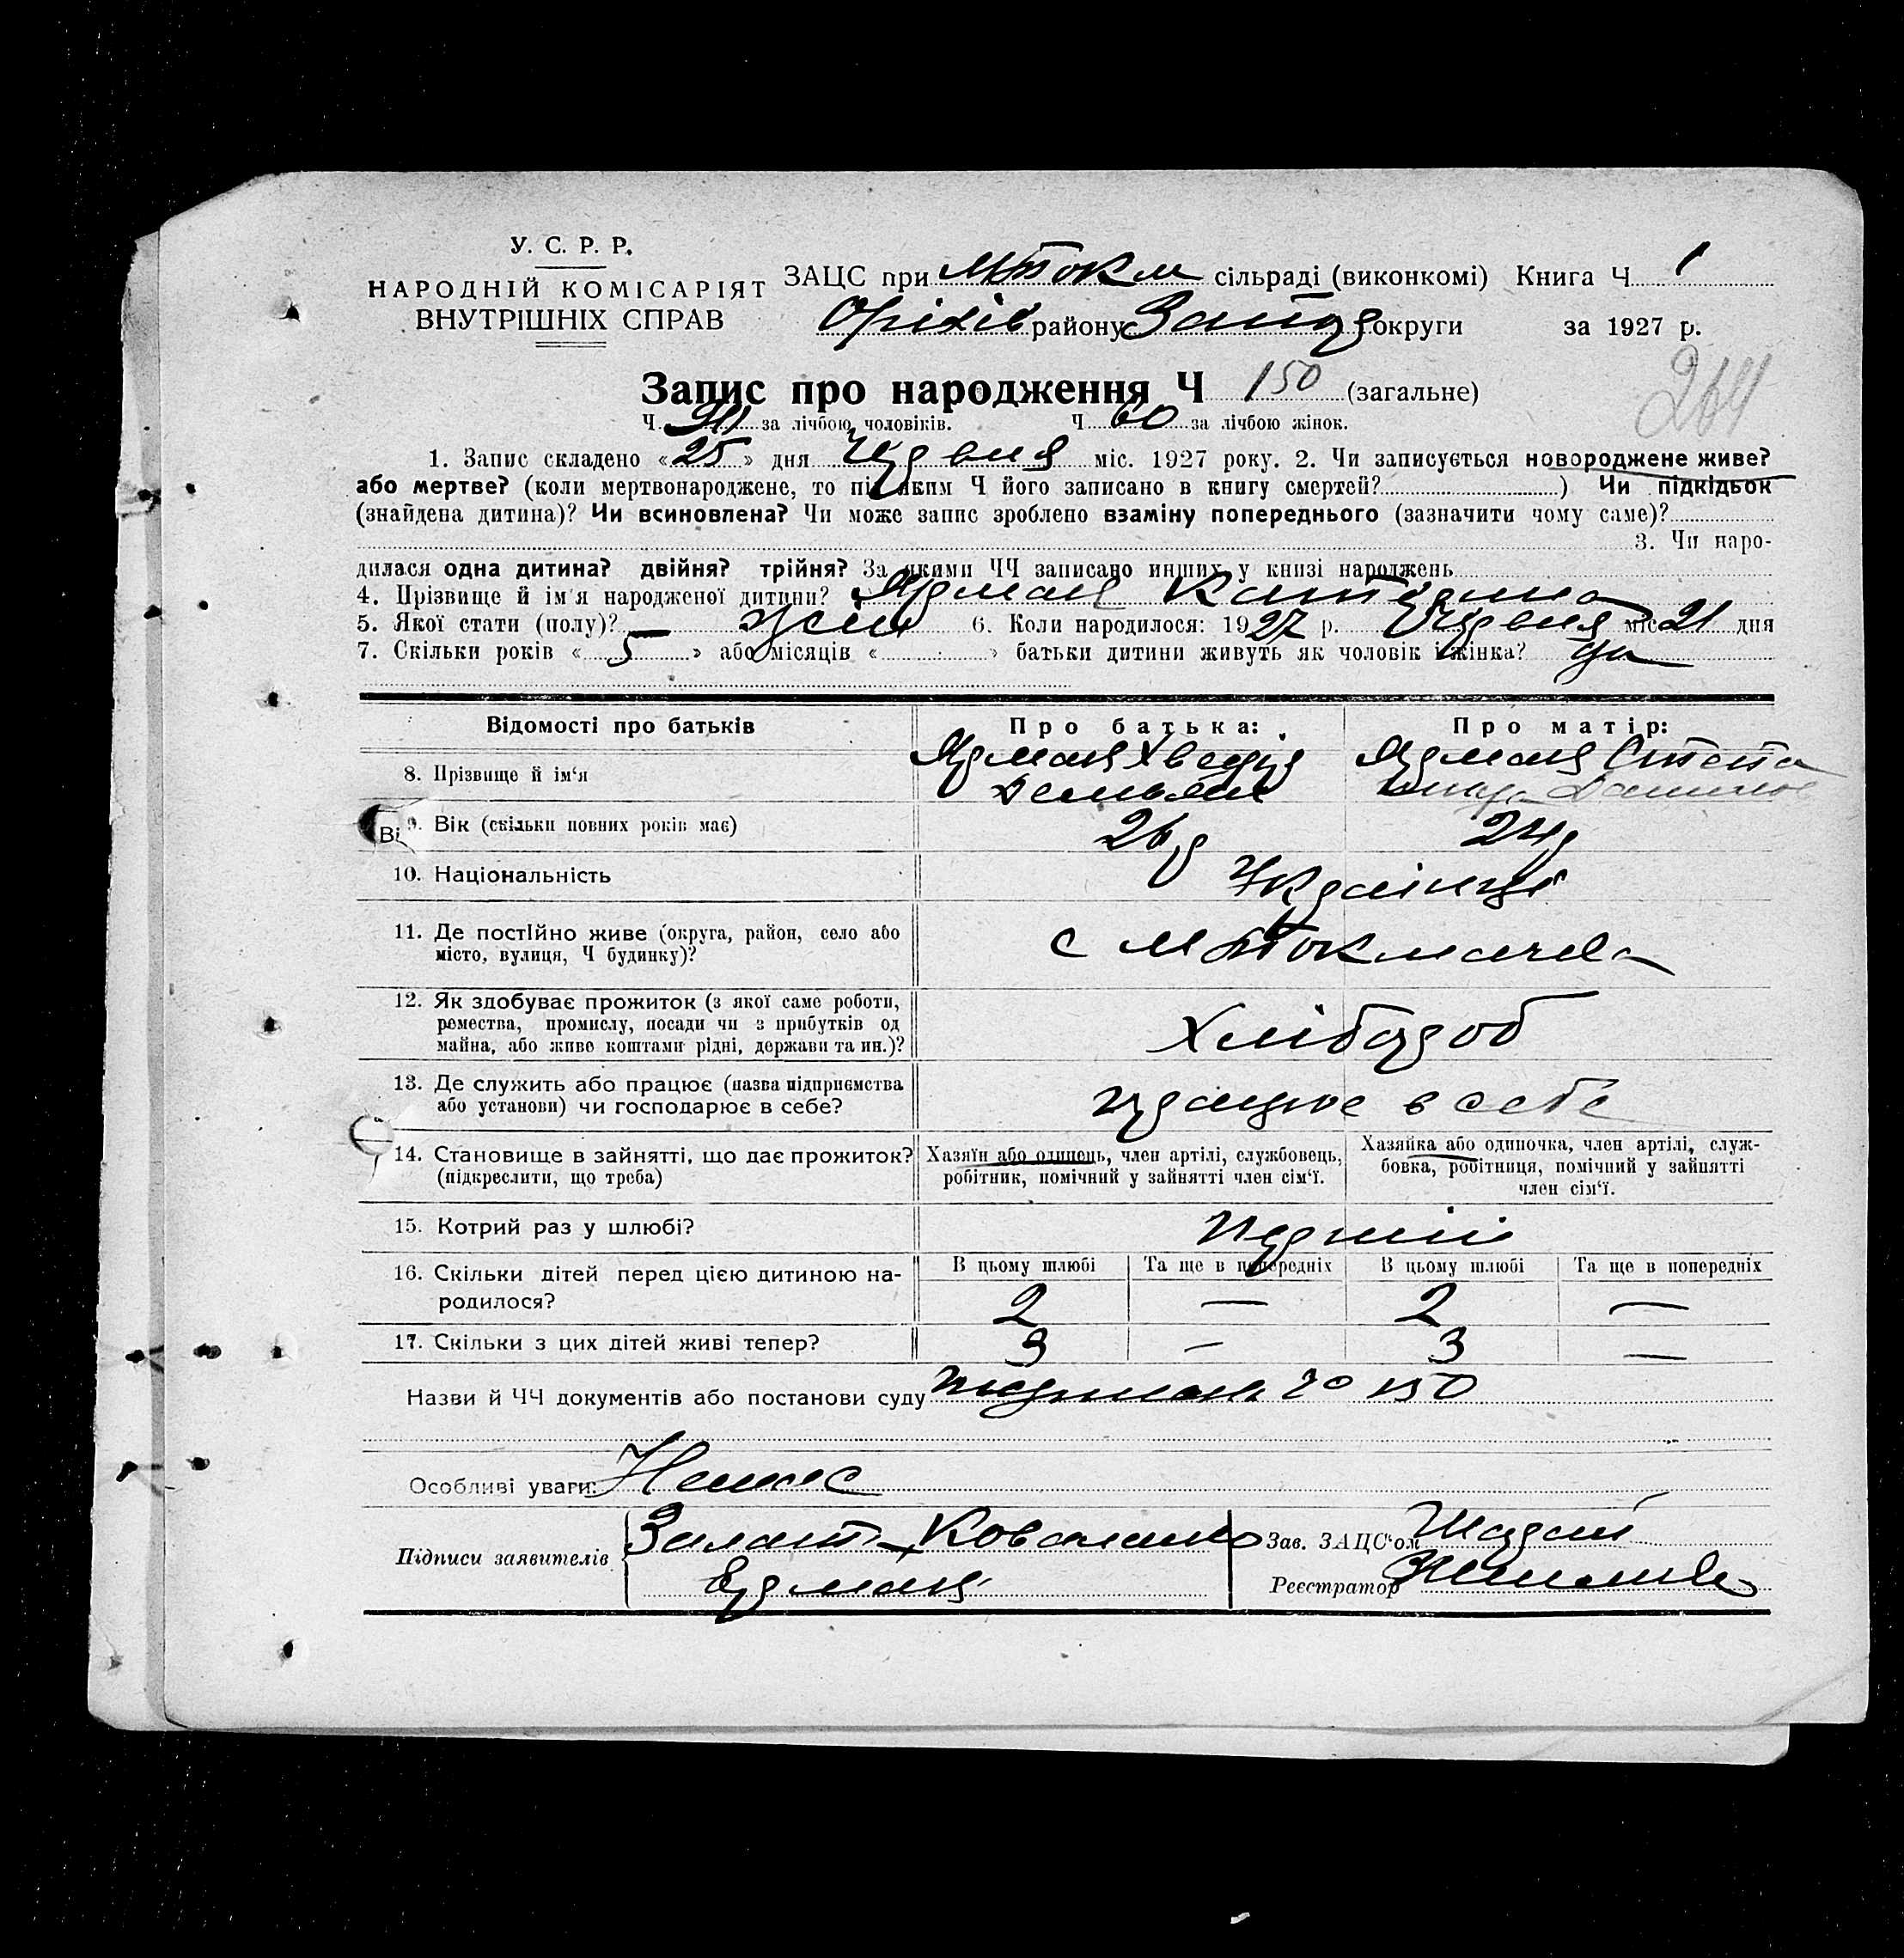 У. С. Р. Р.
НАРОДНІЙ КОМІСАРІЯТ
ВНУТРІШНІХ СПРАВ
ЗАЦС при М Токм сільраді (виконкомі) Книга Ч. 1
Оріхів району Запор округи за 1927 р.
264
Запис про народження Ч 150 (загальне)
Ч. 90 за лічбою чоловіків. Ч. 60 за лічбою жінок.
1. Запис складено «25» дня Червня міс. 1927 року. 2. Чи записується новороджене живе?
або мертве? (коли мертвонароджене, то під яким Ч його записано в книгу смертей?) Чи підкідьок
(знайдена дитина)? Чи всиновлена? Чи може запис зроблено взаміну попереднього (зазначити чому саме)?
3. Чи наро-
дилася одна дитина? двійня? трійня? За якими ЧЧ записано инших у книзі народжень
4. Прізвище й ім'я народженої дитини? Ярмак Катерина
5. Якої стати (полу)? жін 6. Коли народилося: 1927 р. Червня міс 21 дня
7. Скільки років « 5 » або місяців « » батьки дитини живуть як чоловік і жінка?
Відомості про батьків Про батька: Про матір:
8. Прізвище й ім'я
9. Вік (скільки повних років має) 26 р 24 р
10. Національність Українці
11. Де постійно живе (округа, район, село або
місто, вулиця, Ч будинку)? с М Токмачка
12. Як здобуває прожиток (з якої саме роботи,
ремества, промислу, посади чи з прибутків од
майна, або живе коштами рідні, держави та ин.)? Хлібороб
13. Де служить або працює (назва підприємства
або установи) чи господарює в себе? працює в себе
14. Становище в зайнятті, що дає прожиток?
(підкреслити, що треба)
Хазяїн або одинець, член артілі, службовець,
робітник, помічний у зайнятті член сім'ї.
Хазяйка або одиночка, член артілі, служ-
бовка, робітниця, помічний у зайнятті
член сім'ї.
15. Котрий раз у шлюбі? перший
16. Скільки дітей перед цією дитиною на-
родилося?
В цьому шлюбі Та ще в попередніх В цьому шлюбі Та ще в попередніх
2 — 2 —
17. Скільки з цих дітей живі тепер? 3 — 3 —
Назви й ЧЧ документів або постанови суду 150
Особливі уваги: Немає
Підписи заявителів
Зав. ЗАЦС'ом
Реєстратор